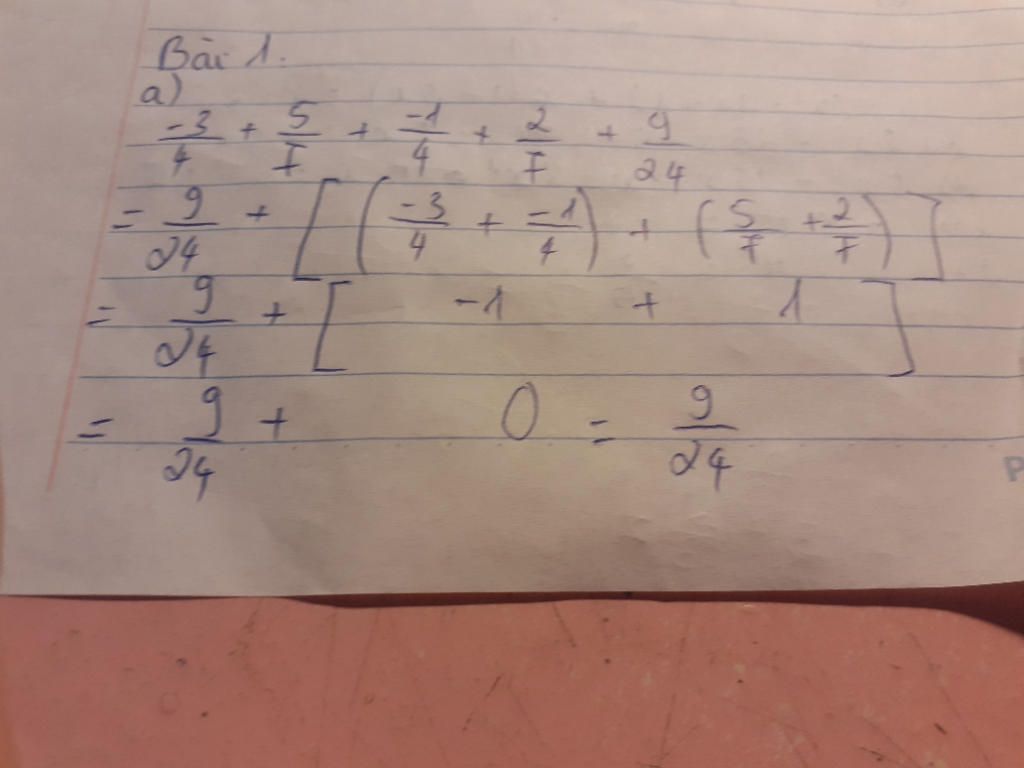 Bài 1.
a)
-3/4 + 5/7 + -1/4 + 2/7 + 9/24
= 9/24 + [ ( -3/4 + -1/4 ) + ( 5/7 + 2/7 ) ]
= 9/24 + [ -1 + 1 ]
= 9/24 + 0 = 9/24
P